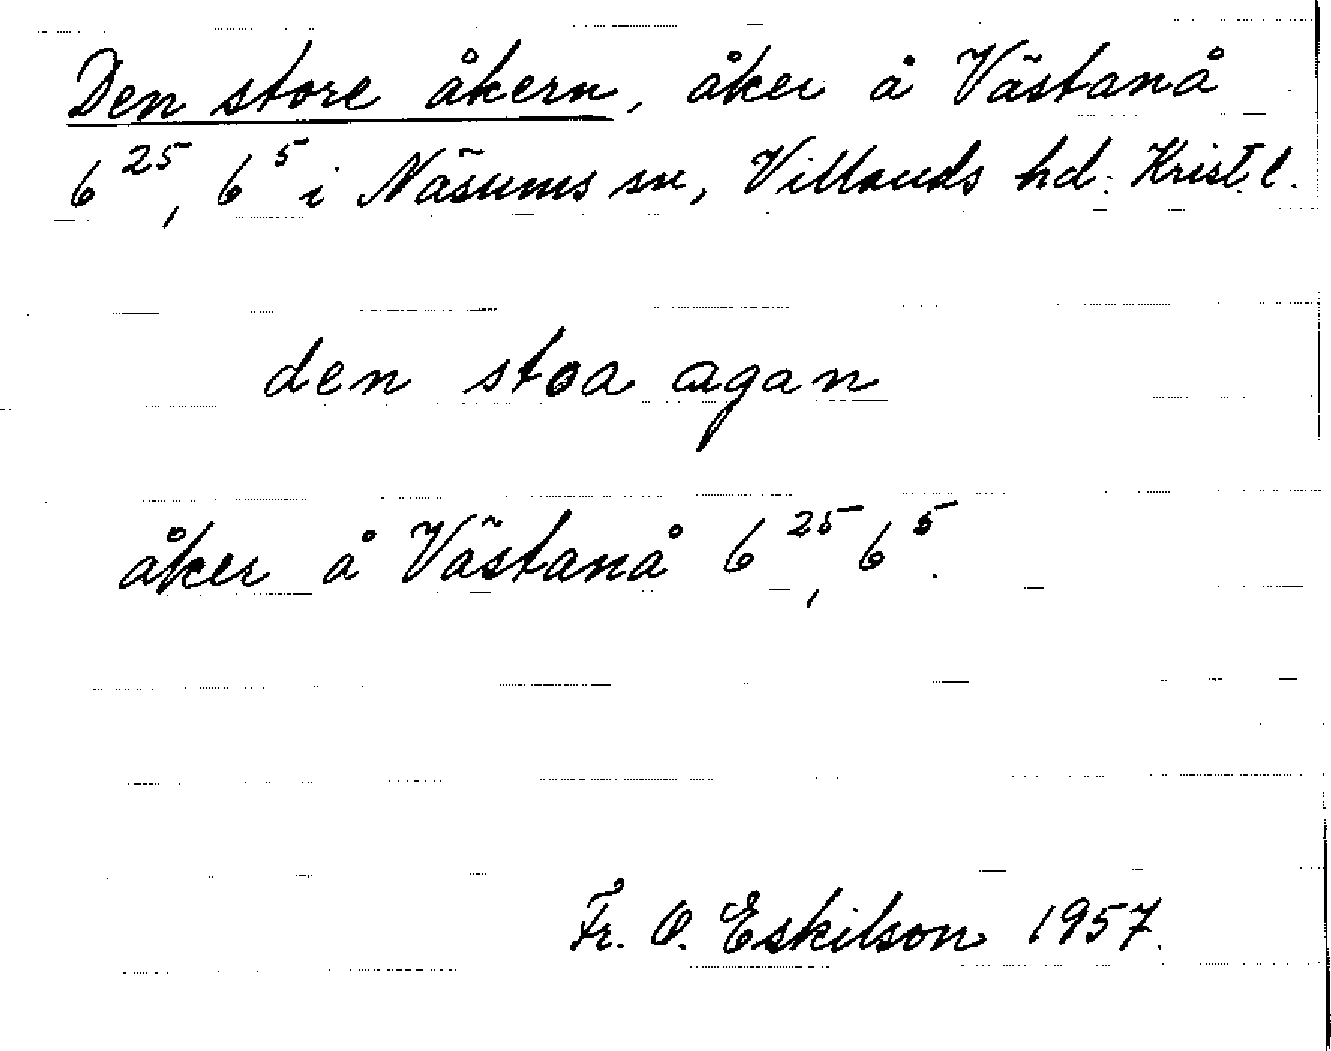 Den store åkern, åker å Västanå
6²⁵, 6⁵ i Näsums sn, Villands hd. Krist. l.
den stoa agan
åker å Västanå 6²⁵, 6⁵.
Fr. O. Eskilson 1957.